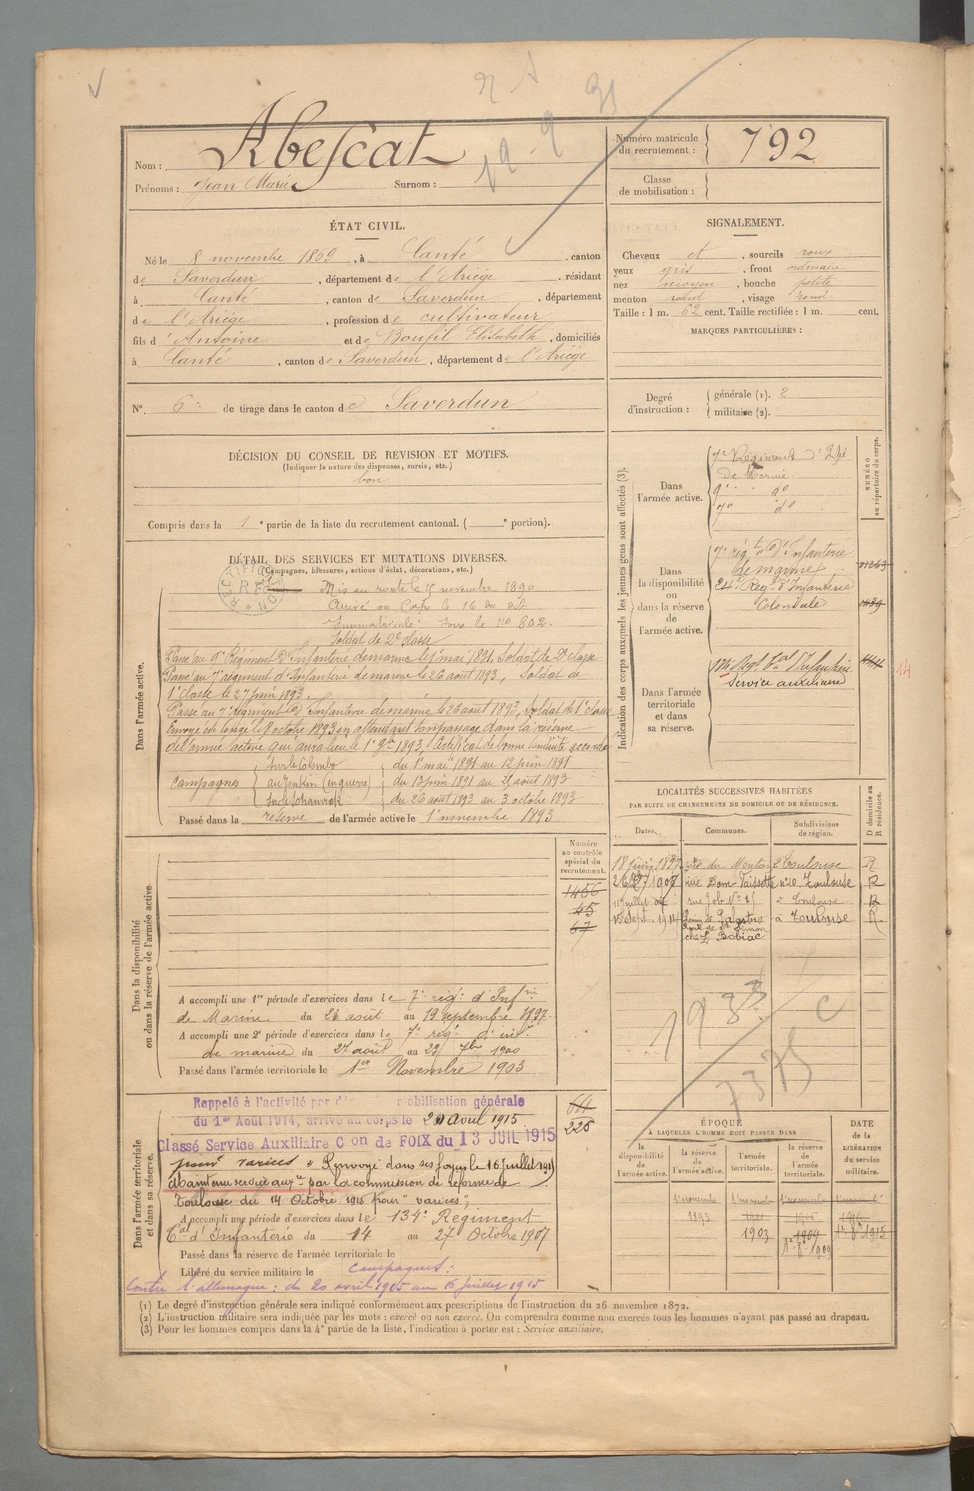 Nom : Abescat
Prénoms : Jean Marie Surnom :
Numéro matricule du recrutement : 792
Classe de mobilisation :
ÉTAT CIVIL.
Né le 8 novembre 1869, à Canté, canton
de Saverdun, département de l'Ariège, résidant
à Canté, canton de Saverdun, département
de l'Ariège, profession de cultivateur
fils d'Antoine et de Boufil Elisabeth, domiciliés
à Canté, canton de Saverdun, département de l'Ariège
N° 6 de tirage dans le canton de Saverdun
SIGNALEMENT.
Cheveux et, sourcils roux
yeux gris, front ordinaire
nez moyen, bouche petite
menton rond, visage rond
Taille : 1 m. 62 cent. Taille rectifiée : 1 m. cent.
MARQUES PARTICULIÈRES :
Degré d'instruction : générale (1). 2
militaire (2).
DÉCISION DU CONSEIL DE REVISION ET MOTIFS.
(Indiquer la nature des dispenses, sursis, etc.)
bon
Compris dans la 1e partie de la liste du recrutement cantonal. ( e portion).
DÉTAIL DES SERVICES ET MUTATIONS DIVERSES.
(Campagnes, blessures, actions d'éclat, décorations, etc.)
Dans l'armée active.
Mis en route le 15 novembre 1890
Arrivé au Corps le 16 du dit
Immatriculé sous le N° 802.
Soldat de 2e classe
Passé au 9e Régiment d'Infanterie de marine le 1er mai 1891, Soldat de 2e classe
Passé au 7e régiment d'Infanterie de marine le 26 août 1893, Soldat de
1e classe le 27 juin 1893.
Passé au 7e régiment d'Infanterie de marine le 26 août 1893, Soldat de 1e classe
Envoyé en congé le 8 octobre 1893 en attendant son passage dans la réserve
de l'armée active qui aura lieu le 1er 9bre 1893. Certificat de bonne conduite accordé
Campagnes
Sur le Colombo du 1er mai 1891 au 12 juin 1891
au Tonkin (en guerre) du 13 juin 1891 au 25 août 1893
du 26 août 1893 au 3 octobre 1893
Passé dans la réserve de l'armée active le 1er novembre 1893
Indication des corps auxquels les jeunes gens sont affectés (3).
NUMÉRO au répertoire du corps.
Dans l'armée active.
7e Régiment d'Inf
de Marine
9e do
7e do
Dans la disponibilité ou dans la réserve de l'armée active.
7e régt d'Infanterie
de marine
24e Regt d'Infanterie
Coloniale
Dans l'armée territoriale et dans sa réserve.
Service auxiliaire
LOCALITÉS SUCCESSIVES HABITÉES
PAR SUITE DE CHANGEMENTS DE DOMICILE OU DE RÉSIDENCE.
Dates. Communes. Subdivisions de région. D domicile ou R résidence.
Toulouse R
rue Dom Vaissette n° 10 Toulouse R
rue Job N° 8 à Toulouse R
15 Sept. 1914 à Toulouse R
chez Bobiac
Dans la disponibilité ou dans la réserve de l'armée active.
Numéro au contrôle spécial du recrutement.
1456
45
67
A accompli une 1re période d'exercices dans le 7e régt d'Infrie
de Marine du 23 août au 19 septembre 1897.
A accompli une 2e période d'exercices dans le 7e régt d'infrie
de marine du 27 août au 23 7bre 1900
Passé dans l'armée territoriale le 1er Novembre 1903
Dans l'armée territoriale et dans sa réserve.
Rappelé à l'activité par mobilisation générale
du 1er Août 1914, arrivé au corps le 20 Avril 1915
Classé Service Auxiliaire Con de FOIX du 13 JUIL 1915
pour varices » Renvoyé dans ses foyers le 16 juillet 1915
Maintenu service auxre par la commission de réforme de
Toulouse du 14 Octobre 1915 pour " varices ",
A accompli une période d'exercices dans le 134e Régiment
Tal d'Infanterie du 14 au 27 Octobre 1907
Passé dans la réserve de l'armée territoriale le
Libéré du service militaire le
Campagnes :
Contre l'allemagne : du 20 avril 1915 au 16 juillet 1915
226
ÉPOQUE
À LAQUELLE L'HOMME DOIT PASSER DANS
la disponibilité de l'armée active. la réserve de l'armée active. l'armée territoriale. la réserve de l'armée territoriale.
DATE de la LIBÉRATION du service militaire.
1er novembre 1893
1903
1909
(1) Le degré d'instruction générale sera indiqué conformément aux prescriptions de l'instruction du 26 novembre 1872.
(2) L'instruction militaire sera indiquée par les mots : exercé ou non exercé. On comprendra comme non exercés tous les hommes n'ayant pas passé au drapeau.
(3) Pour les hommes compris dans la 4e partie de la liste, l'indication à porter est : Service auxiliaire.